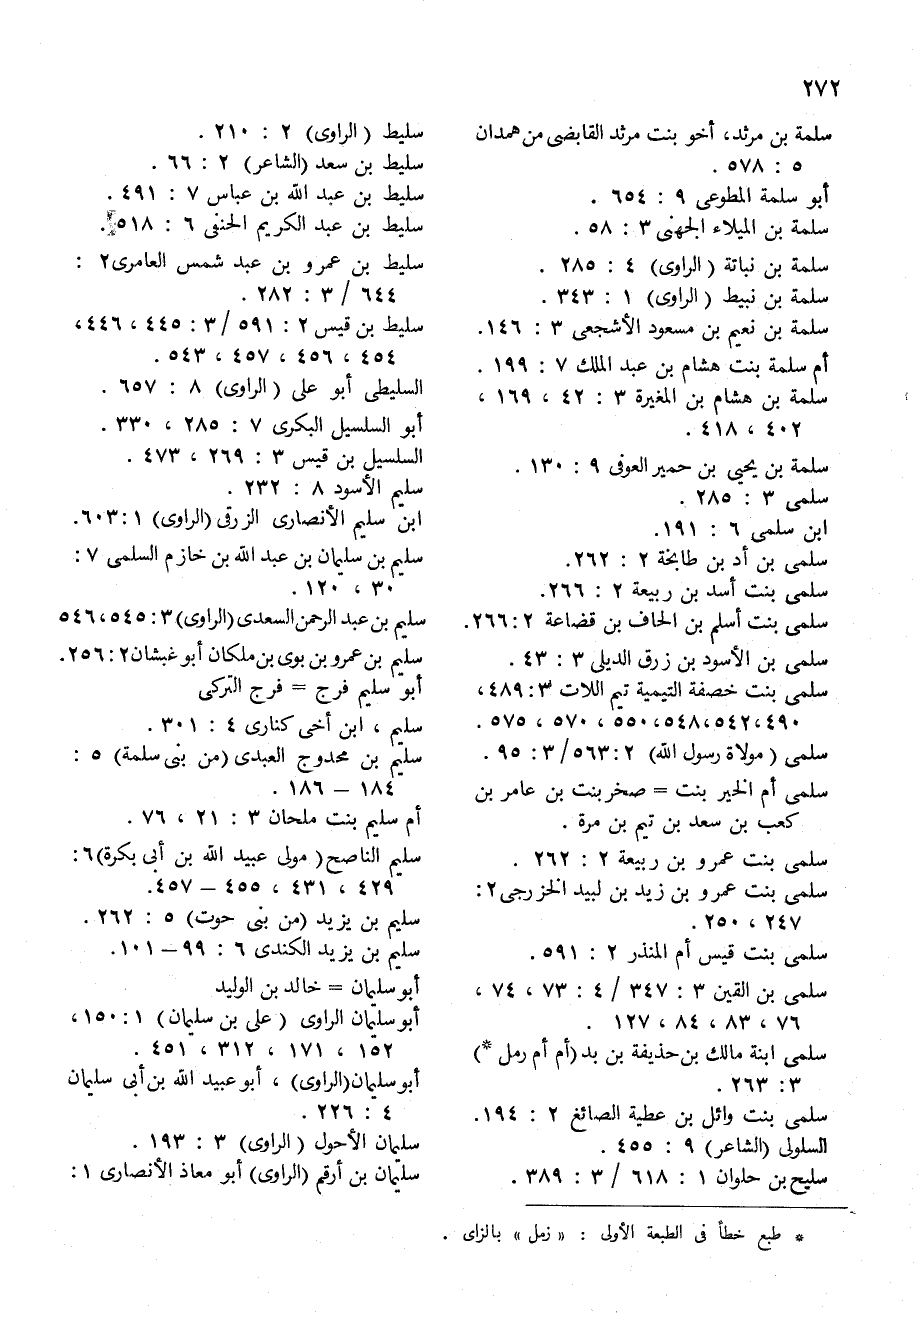 ٢٧٢
سلمة بن مرثد، أخو بنت مرثد القابضى من همدان
٥ : ٥٧٨ .
أبو سلمة المطوعى ٩ : ٦٥٤ .
سلمة بن الميلاء الجهنى ٣ : ٥٨ .
سلمة بن نباتة ( الراوى) ٤ : ٢٨٥ .
سلمة بن نبيط ( الراوى) ١ : ٣٤٣ .
سلمة بن نعيم بن مسعود الأشجعى ٣ : ١٤٦.
أم سلمة بنت هشام بن عبد الملك ٧ : ١٩٩ .
سلمة بن هشام بن المغيرة ٣ : ٤٢ ، ١٦٩ ،
٤٠٢ ، ٤١٨ .
سلمة بن يحيى بن حمير العوفى ٩ : ١٣٠ .
سلمى ٣ : ٢٨٥ .
ابن سلمى ٦ : ١٩١.
سلمى بن أد بن طابخة ٢ : ٢٦٢.
سلمى بنت أسد بن ربيعة ٢ : ٢٦٦.
سلمى بنت أسلم بن الحاف بن قضاعة ٢ :٢٦٦.
سلمى بن الأسود بن زرق الديلى ٣ : ٤٣ .
سلمى بنت خصفة التيمية تيم اللات ٣ :٤٨٩،
٤٩٠،٥٤٢،٥٤٨،٥٥٠ ، ٥٧٠ ، ٥٧٥ .
سلمى ( مولاة رسول الله) ٢ :٥٦٣ /٣ : ٩٥ .
سلمى أم الخير بنت = صخر بنت بن عامر بن
كعب بن سعد بن تيم بن مرة .
سلمى بنت عمرو بن ربيعة ٢ : ٢٦٢ .
سلمى بنت عمرو بن زيد بن لبيد الخزرجى ٢ :
٢٤٧ ، ٢٥٠ .
سلمى بنت قيس أم المنذر ٢ : ٥٩١ .
سلمى بن القين ٣ : ٣٤٧ / ٤ : ٧٣ ، ٧٤ ،
٧٦ ، ٨٣ ، ٨٤ ، ١٢٧ .
سلمى ابنة مالك بن حذيفة بن بد (أم أم رمل *)
٣ : ٢٦٣ .
سلمى بنت وائل بن عطية الصائغ ٢ : ١٩٤ .
السلولى (الشاعر) ٩ : ٤٥٥ .
سليح بن حلوان ١ : ٦١٨ / ٣ : ٣٨٩ .
سليط ( الراوى) ٢ : ٢١٠ .
سليط بن سعد (الشاعر) ٢ : ٦٦ .
سليط بن عبد الله بن عباس ٧ : ٤٩١ .
سليط بن عبد الكريم الحنفى ٦ : ٥١٨ .
سليط بن عمرو بن عبد شمس العامرى ٢ :
٦٤٤ / ٣ : ٢٨٢ .
سليط بن قيس ٢ : ٥٩١ / ٣ : ٤٤٥ ، ٤٤٦ ،
٤٥٤ ، ٤٥٦ ، ٤٥٧ ، ٥٤٣ .
السليطى أبو على ( الراوى) ٨ : ٦٥٧ .
أبو السلسيل البكرى ٧ : ٢٨٥ ، ٣٣٠ .
السلسيل بن قيس ٣ : ٢٦٩ ، ٤٧٣ .
سليم الأسود ٨ : ٢٣٢ .
ابن سليم الأنصارى الزرقى (الراوى) ١ :٦٠٣.
سليم بن سليمان بن عبد الله بن خازم السلمى ٧ :
٣٠ ، ١٢٠ .
سليم بن عبد الرحمن السعدى (الراوى) ٣ : ٥٤٥ ، ٥٤٦
سليم بن عمرو بن بوى بن ملكان أبو غبشان ٢ : ٢٥٦ .
أبو سليم فرج = فرج التركى
سليم ، ابن أخى كنارى ٤ : ٣٠١ .
سليم بن محدوج العبدى (من بنى سلمة) ٥ :
١٨٤ – ١٨٦ .
أم سليم بنت ملحان ٣ : ٢١ ، ٧٦ .
سليم الناصح ( مولى عبيد الله بن أبى بكرة) ٦ :
٤٢٩ ، ٤٣١ ، ٤٥٥ – ٤٥٧.
سليم بن يزيد (من بنى حوت) ٥ : ٢٦٢ .
سليم بن يزيد الكندى ٦ : ٩٩ – ١٠١ .
أبو سليمان = خالد بن الوليد
أبو سليمان الراوى ( على بن سليمان) ١ : ١٥٠ ،
١٥٢ ، ١٧١ ، ٣١٢ ، ٤٥١ .
أبو سليمان (الراوى) ، أبو عبيد الله بن أبى سليمان
٤ : ٢٢٦ .
سليمان الأحول ( الراوى) ٣ : ١٩٣ .
سليمان بن أرقم (الراوى) أبو معاذ الأنصارى ١ :
* طبع خطأ فى الطبعة الأولى : « زمل » بالزاى .